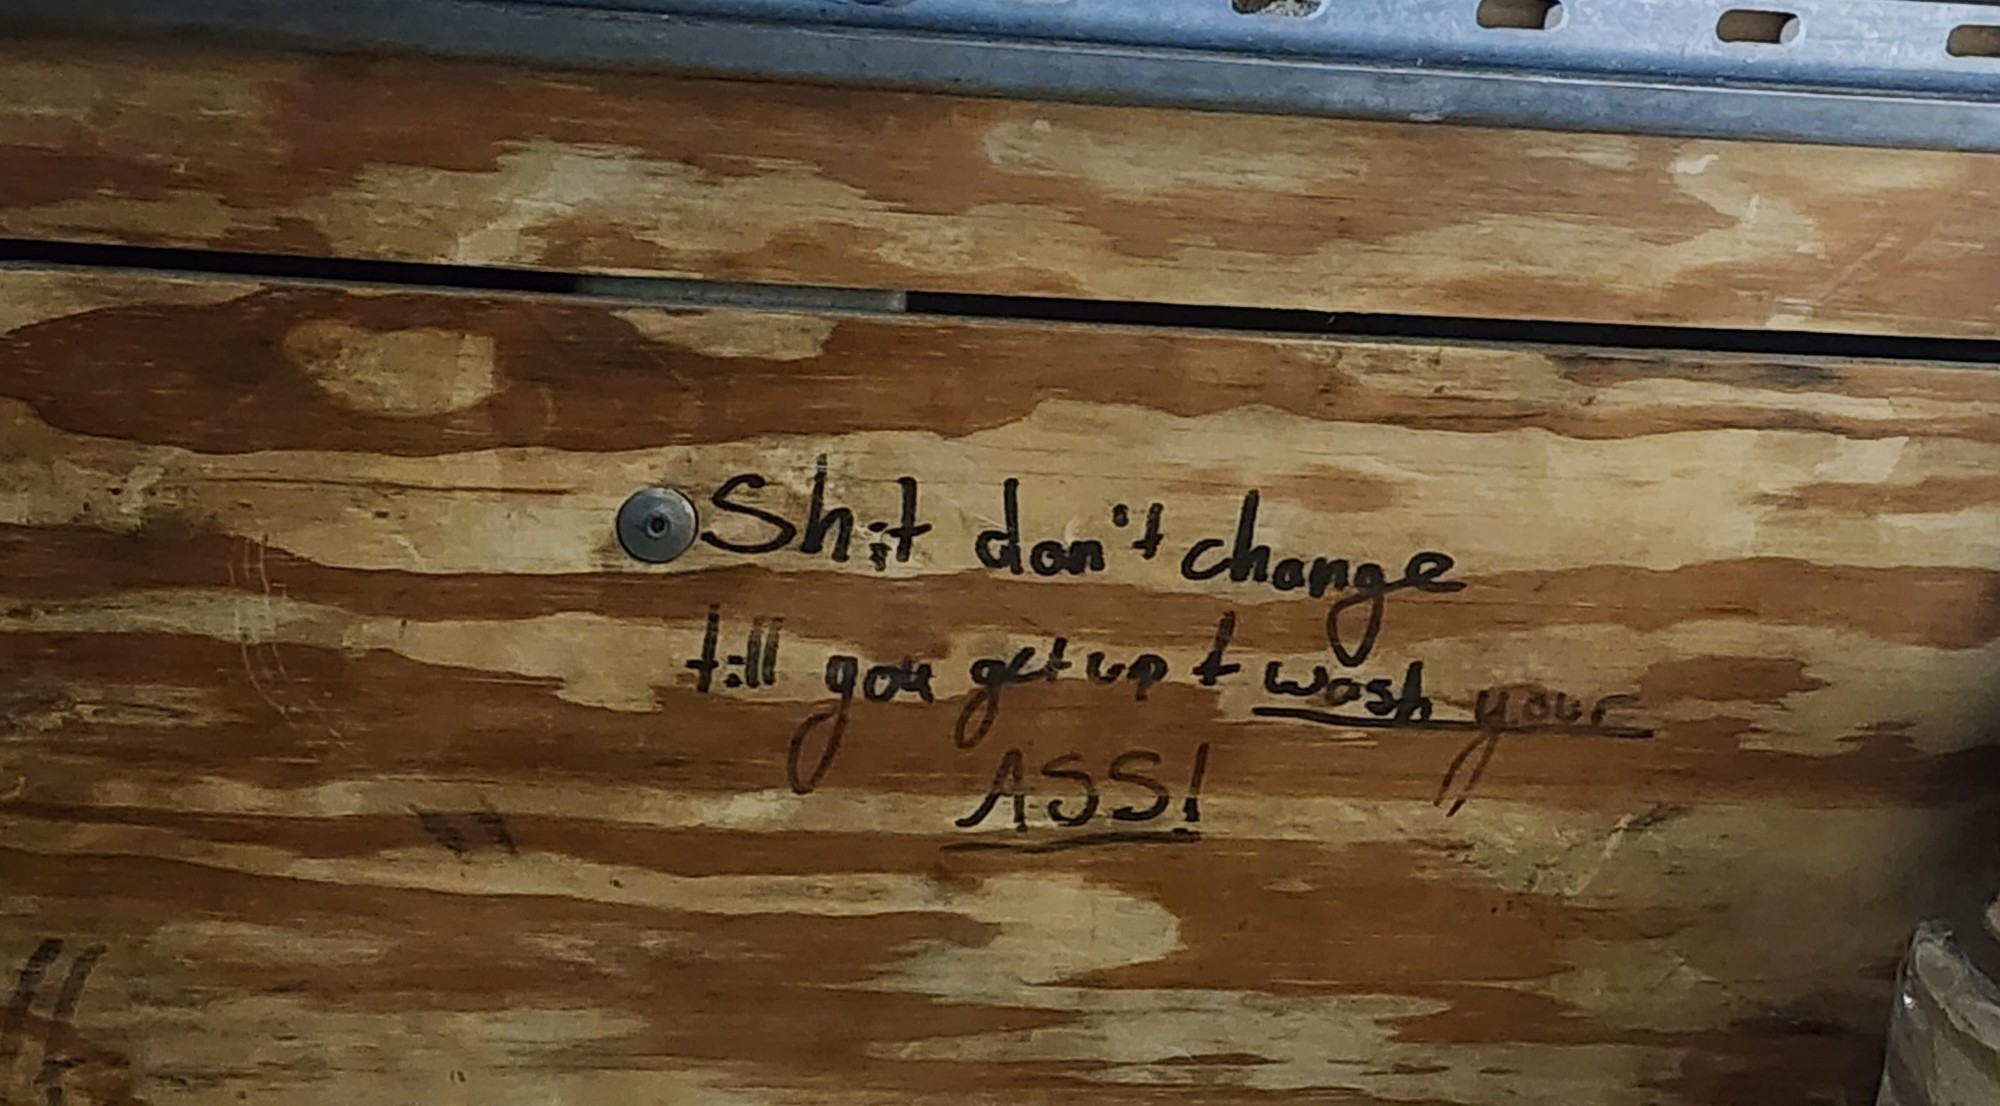 Shit don't change
till you get up + wash your
ASS!